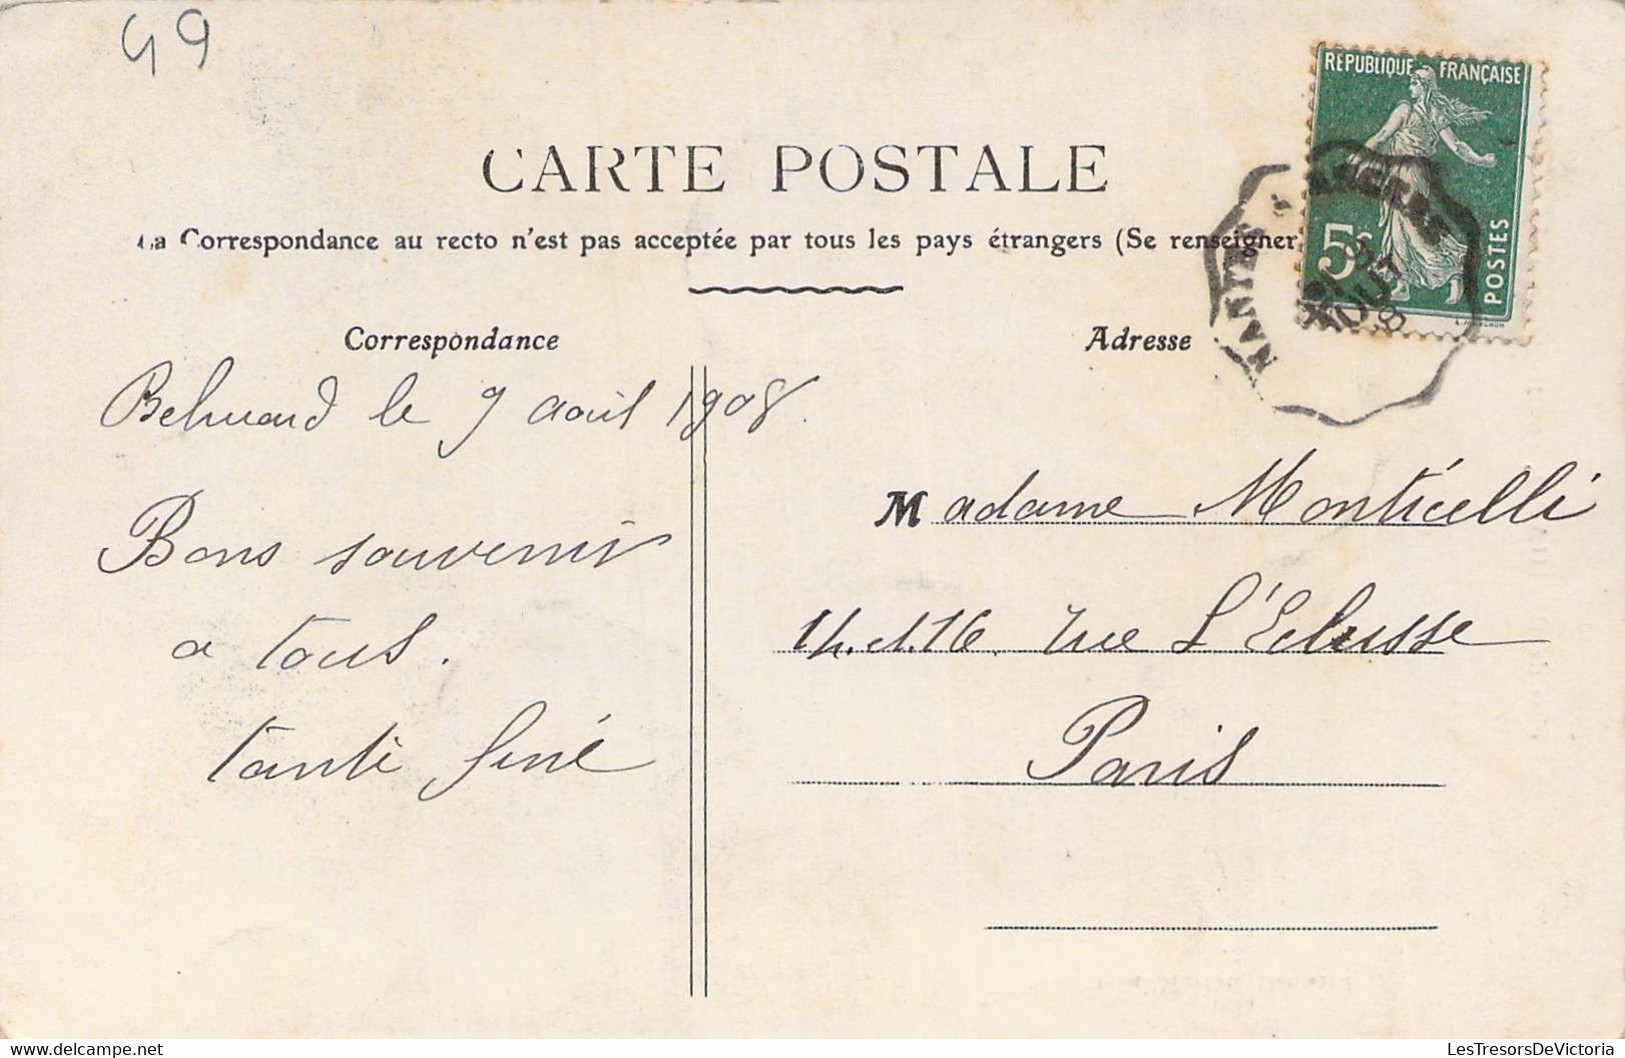 49
RÉPUBLIQUE FRANÇAISE
5c
POSTES
CARTE POSTALE
La Correspondance au recto n'est pas acceptée par tous les pays étrangers (Se renseigner
NANTES
AOUT
Correspondance
Adresse
Behuard le 9 août 1908
Bons souvenir
a tous.
tante Finé
Madame Monticelli
14.et.16. rue L'Ecluse
Paris
LesTresorsDeVictoria